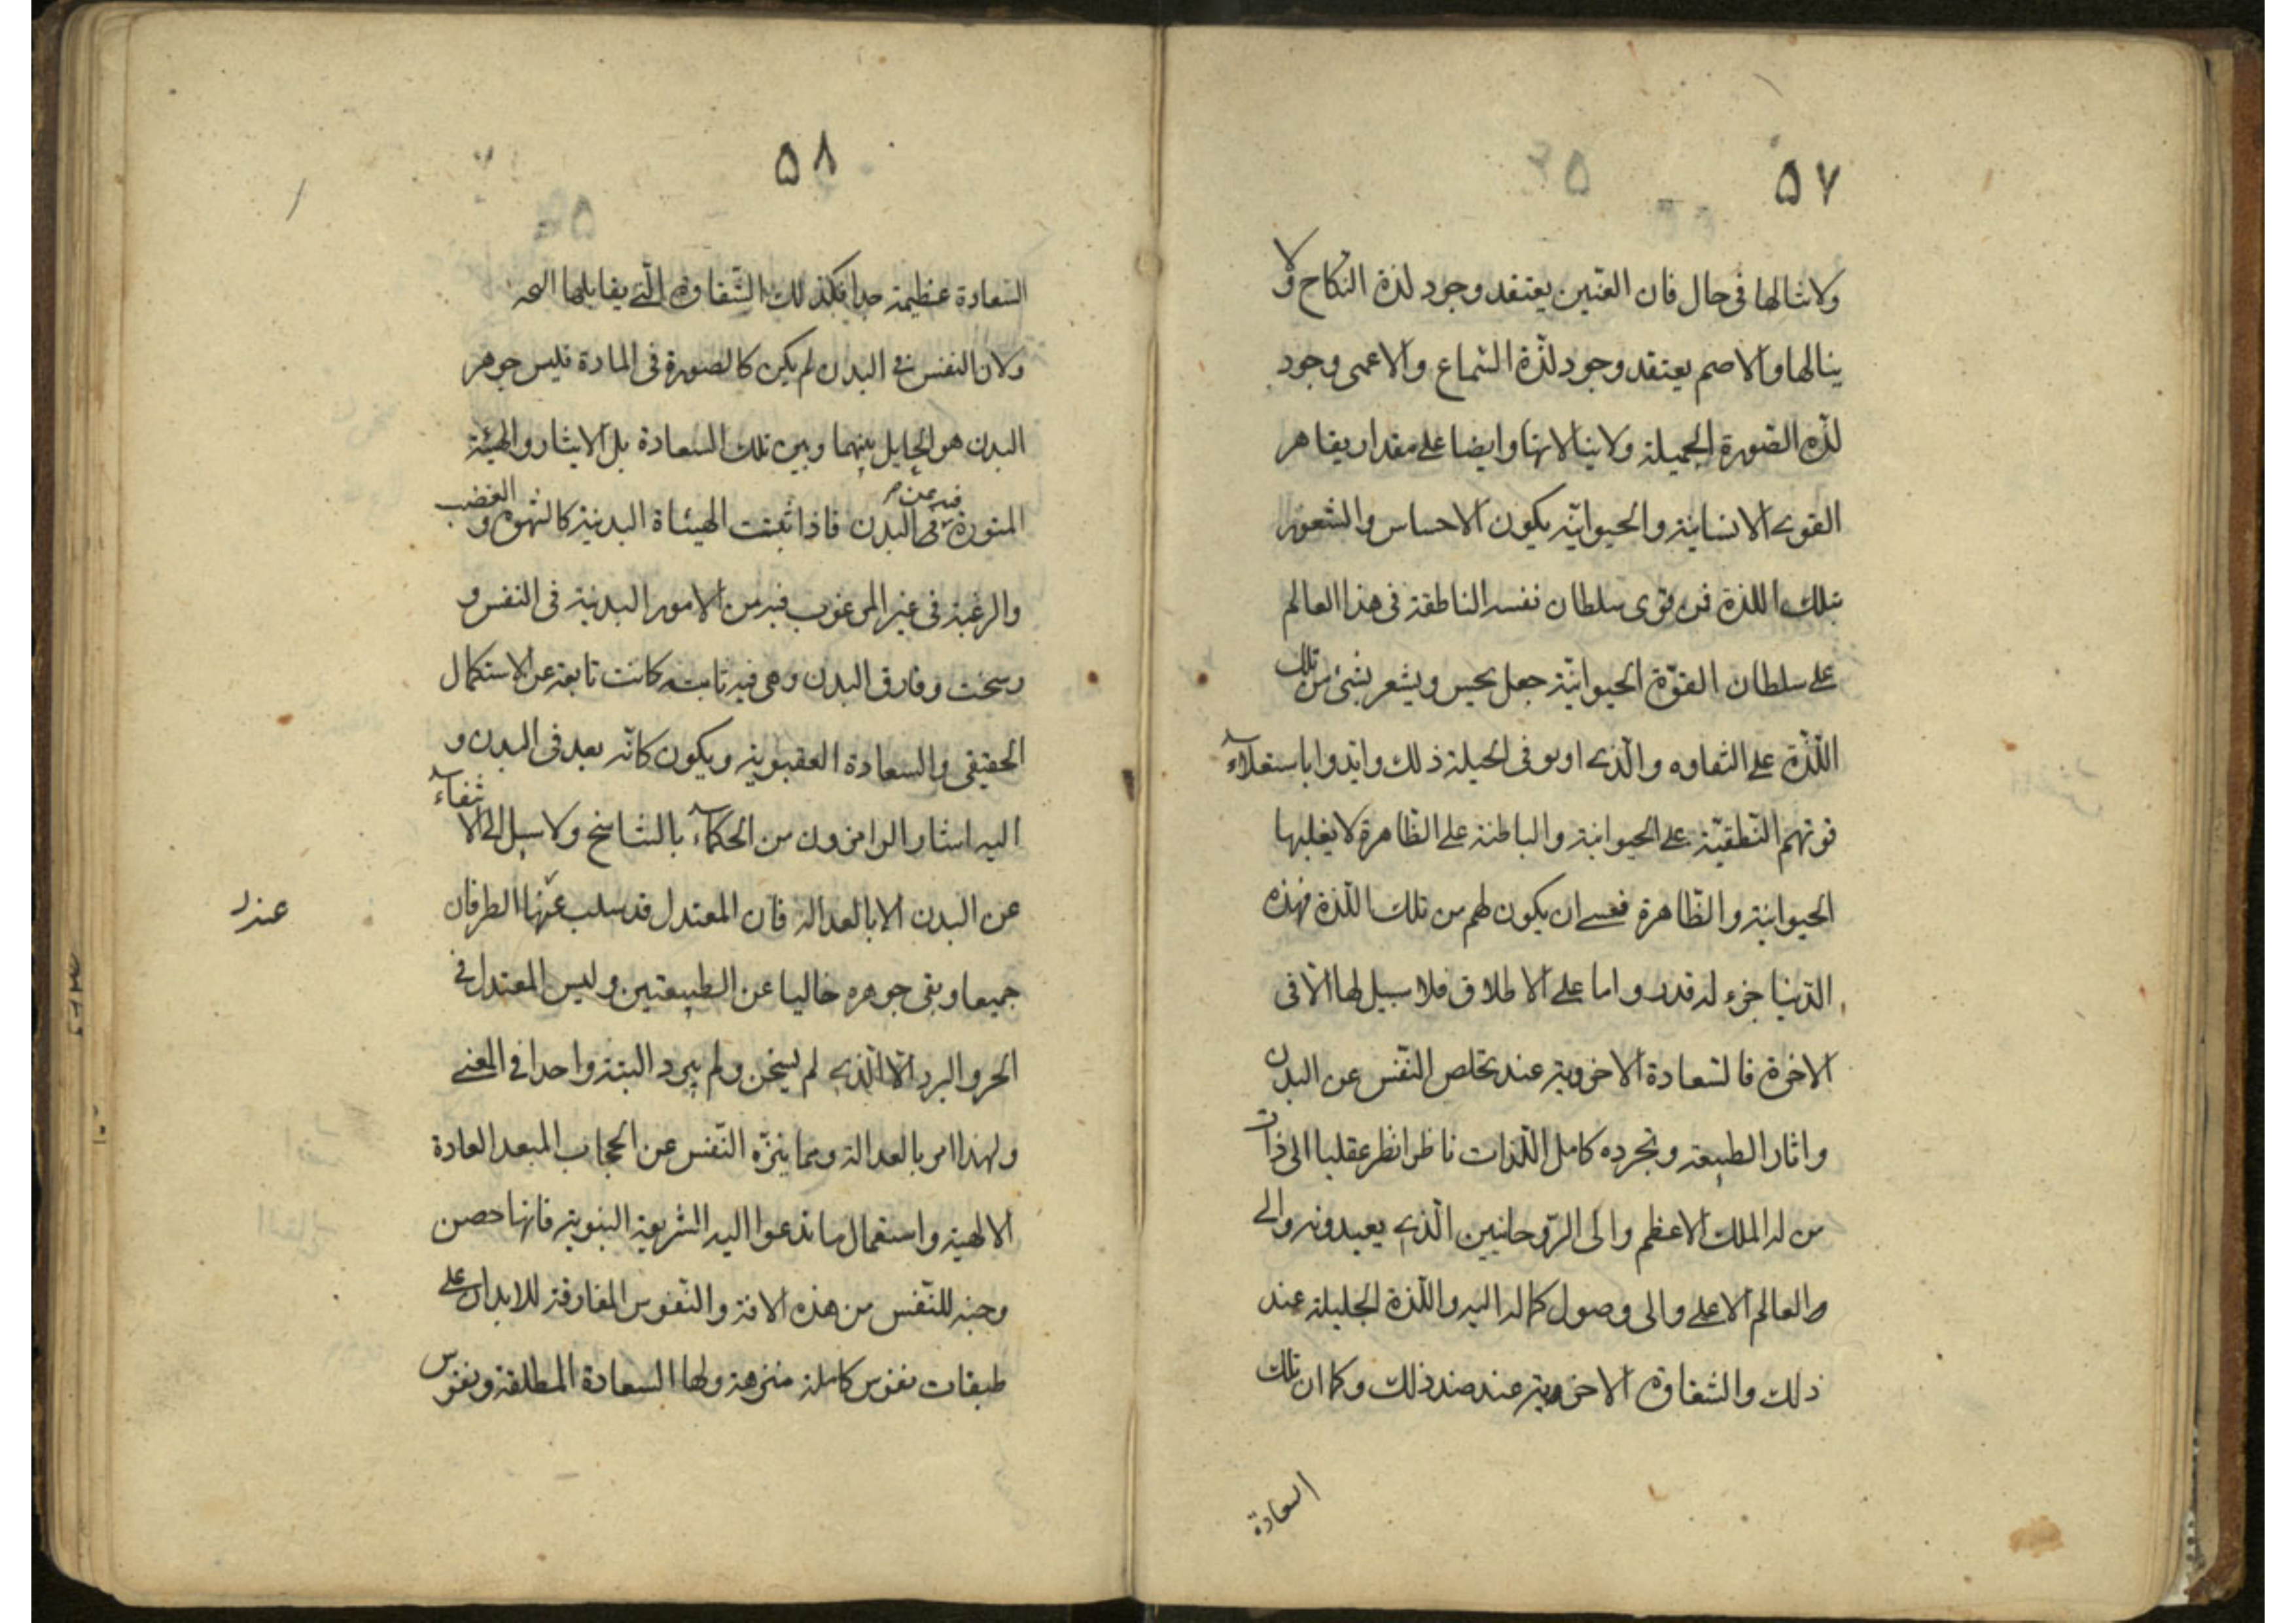 ٥٧
ولا ينالها فى حال فان العنّين يعتقد وجود لذة النكاح ولا
ينالها والاصم يعتقد وجود لذّة السّماع والاعمى وجود
لذّه الصّورة الجميلة ولا ينالانها وايضا على مقدار يقاهر
القوى الانسانية والحيوانيّه يكون الاحساس والشعور
بتلك اللذة فمن قوى سلطان نفسه الناطقة فى هذا العالم
على سلطان القوّة الحيوانيّة جعل يحس ويشعر بشئ من تلك
اللّذّة على التفاوه والّذى اوتوا فى الجبلة ذلك وايّدوا باستعلاء
قوتهم النّطقيّة على الحيوانية والباطنة على الظاهرة لا يغلبها
الحيوانية والظّاهرة فعسى ان يكون لهم من تلك اللّذة فهذه
الدّنيا جزء له قدر واما على الاطلاق فلا سبيل لها الّا فى
الاخرة فالسّعادة الاخروية عند تخلص النّفس عن البدن
واثار الطبيعة وتجرده كامل اللّذات ناظرا نظر عقليا الى ذات
من له الملك الاعظم والى الرّوحانيين الّذى يعبدونه والى
والعالم الاعلى والى وصول كماله اليه واللّذة الجليلة عند
ذلك والشقاوة الاخروية عند ضد ذلك وكما ان تلك
السعادة
٥٨
السّعادة عظيمة جدا فكذلك الشّقاوة الّتى يقابلها اليمه
ولان النفس فى البدن لم يكن كالصورة فى المادة فليس جوهر
البدن هو الحايل بينهما وبين تلك السعادة بل الايثار والهيئة
المنورة فيه عن فى البدن فاذا ثبتت الهيئاة البدنية كالشهوة والغضب
والرغبة فى غير المرغوب فيه من الامور البدنية فى النفس و
رسخت وفارق البدن وهى فيه ثابتة كانت تابعة عن الاستكمال
الحقيقى والسعادة العقبوية ويكون كانّه بعد فى البدن و
اليه اشار الرامزون من الحكماء بالتناسخ ولا سبيل الى الاشفاء
عن البدن الا بالعدالة فان المعتدل قد سلب عنها الطرفان
عند
جميعا وبقى جوهره خاليا عن الطبيعتين وليس المعتدل فى
الحر والبرد الّا الّذى لم يسخن ولم يبرد البتة واحدا فى المعنى
ولهذا امر بالعدالة وبما ينزّه النّفس عن الحجاب المبعد العادة
الالهية واستعمال ما تدعوا اليه الشريعة النبوية فانها حصن
وجنة للنّفس من هذه الافة والنّفوس المفارقة للابدان على
طبقات نفوس كاملة منزهة ولها السعادة المطلقة ونفوس